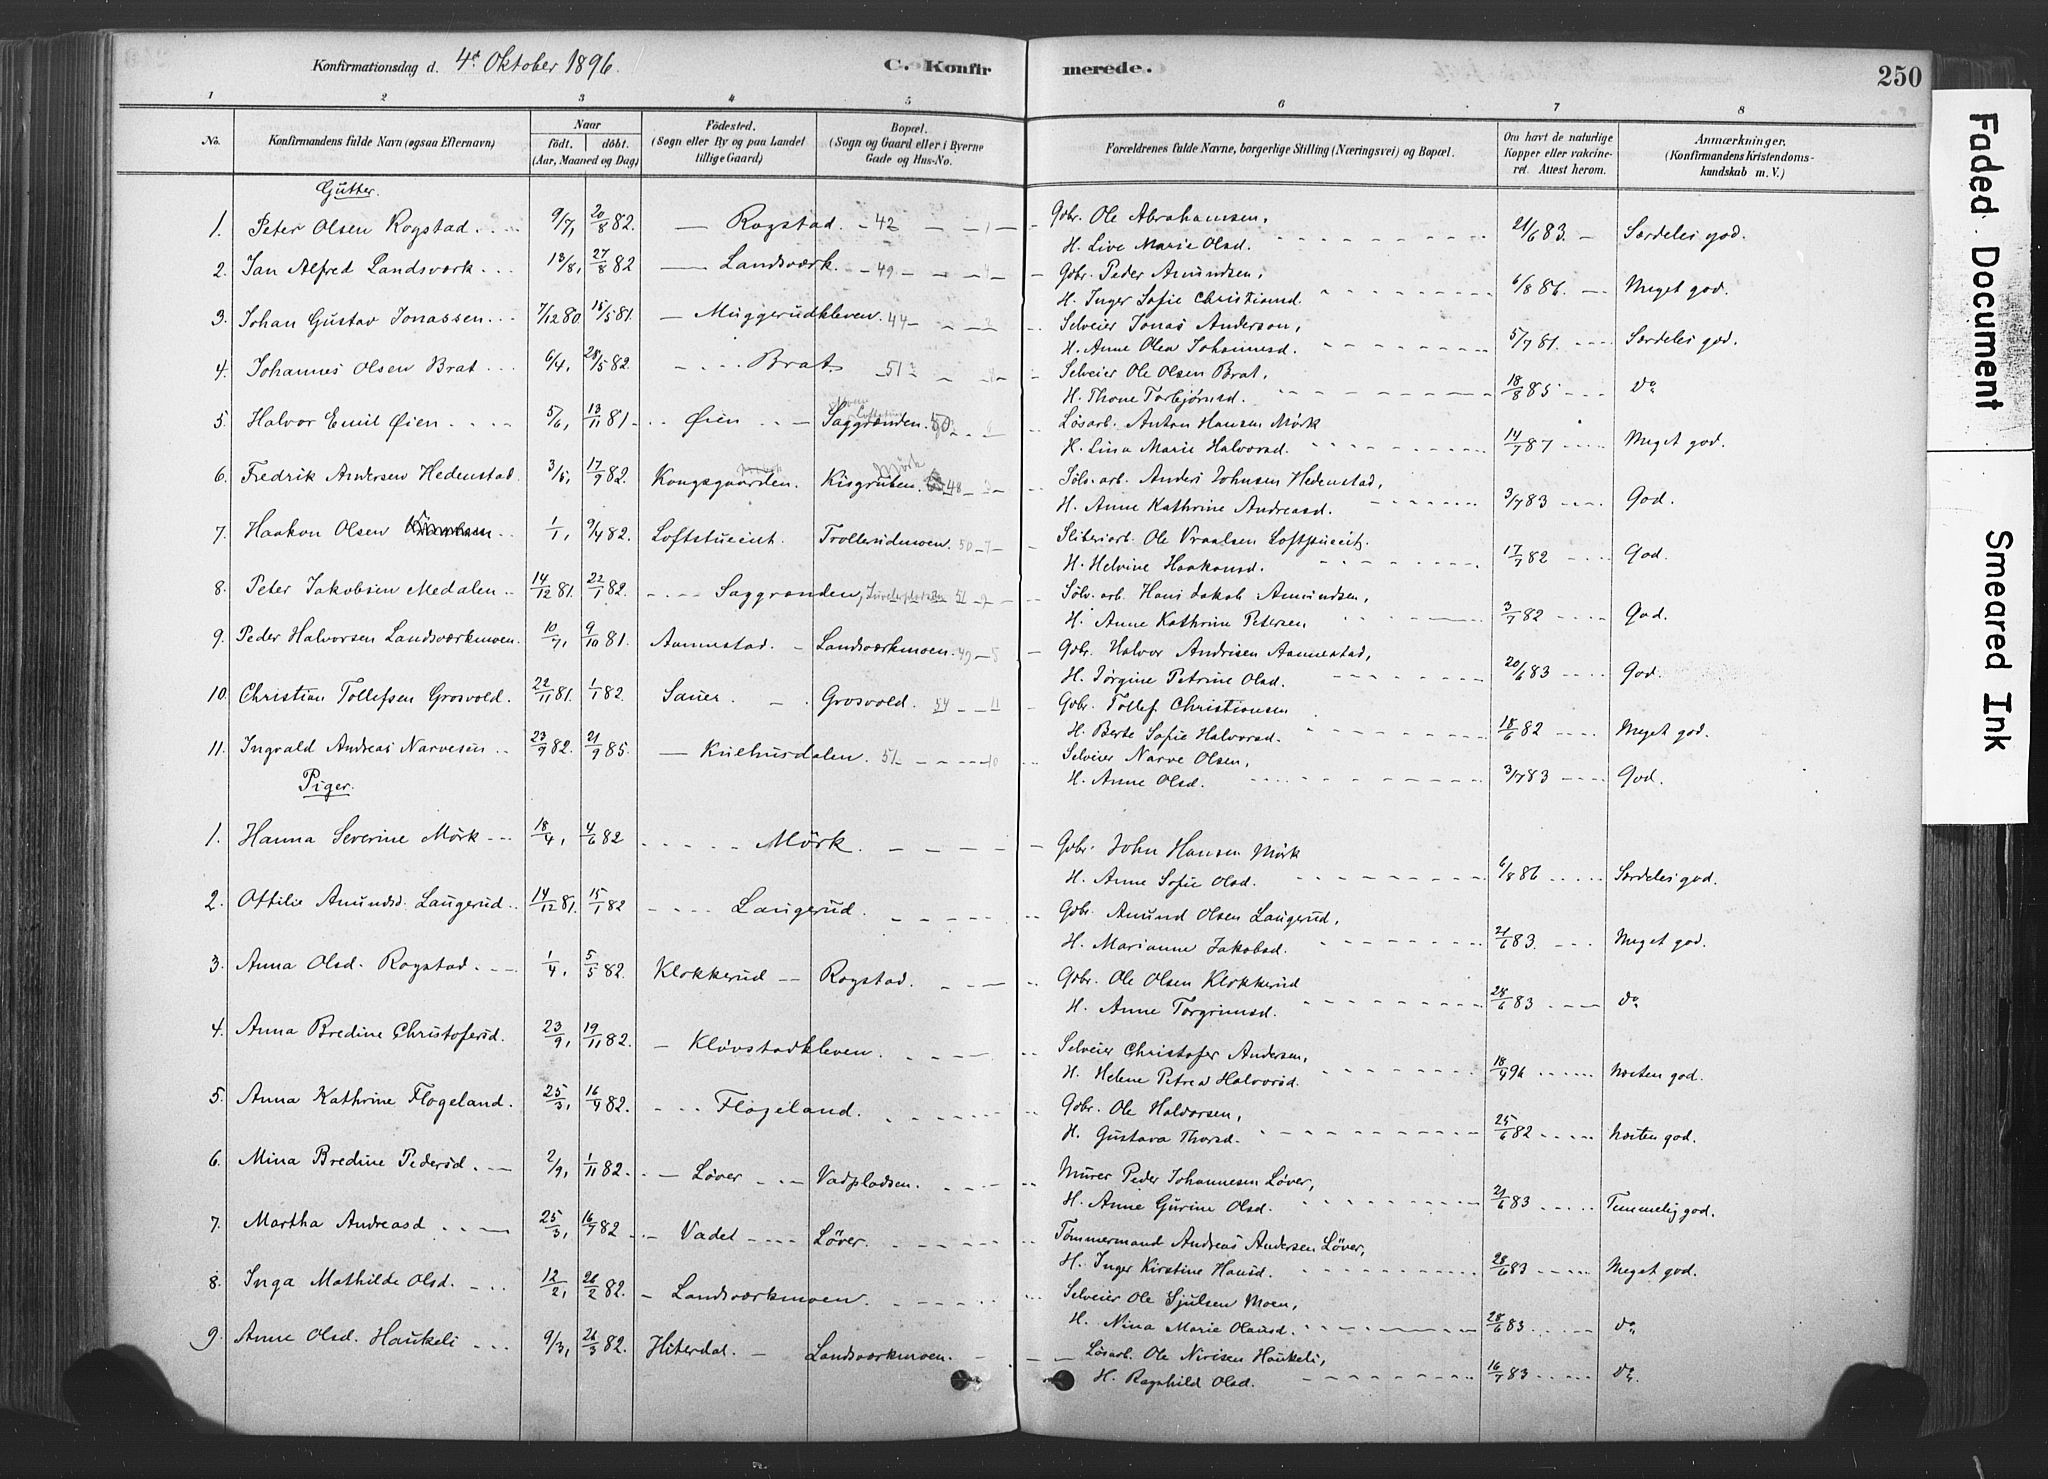 Konfirmationsdag d. 4de Oktober 1896. C. Konfirmerede. 250
1 2 3 4 5 6 7 8
No. Konfirmandens fulde Navn (ogsaa Efternavn) Naar født. døbt. (Aar, Maaned og Dag) Fødested. (Sogn eller By og paa Landet tillige Gaard) Bopæl. (Sogn og Gaard eller i Byerne Gade og Hus-No. Forældrenes fulde Navne, borgerlige Stilling (Næringsvei) og Bopæl. Om havt de naturlige Kopper eller vakcineret. Attest herom. Anmærkninger. (Konfirmandens Kristendomskundskab m. V.)
Gutter.
1. Peter Olsen Rogstad. 9/7, 20/8 82. Rogstad. 42 Gdbr. Ole Abrahamsen, 21/6 83. Særdeles god.
H. Live Marie Olsd.
2. Jan Alfred Landsværk 13/8, 27/8 82 Landsværk. 49 Gdbr. Peder Amundsen, 6/8 86. Meget god.
H. Inger Sofie Christiansd.
3. Johan Gustav Jonassen 7/12 80. 15/5 81. Muggerudkleven. 44 Selveier Jonas Anderson, 5/7 81. Særdeles god.
H. Anne Olea Johannesd.
4. Johannes Olsen Brat 6/4, 28/5 82. Brat. 51 Selveier Ole Olsen Brat, 18/8 85 do
H. Thone Torbjørnsd.
5. Halvor Emil Øien 5/6, 13/11 81 Øien Saggrænden. 50 Løsarb. Anton Hansen Mörk 14/7 87 Meget god.
H. Lina Marie Halvorsd.
6. Fredrik Andersen Hedenstad. 3/5, 17/9 82. Kongsgaarden. Kisgruben. Mörk 48 Sölv.arb. Anders Johnsen Hedenstad, 3/7 83 God.
H. Anne Kathrine Andreasd.
7. Haakon Olsen 1/1, 9/4 82. Loftstueeiet. Trollerudmoen. 50 Sliteriarb. Ole Vraalsen Loftstueeit. 17/7 82 God.
H. Helvine Haakonsd.
8. Peter Jakobsen Medalen 14/12 81. 22/1 82. Saggrænden, 51 Sölv. arb. Hans Jakob Amundsen, 3/7 82 God.
H. Anne Kathrine Petersen
9. Peder Halvorsen Landsværkmoen. 10/7, 9/10 81. Aannestad. Landsværkmoen. 49 5 Gdbr. Halvor Andersen Aannestad, 20/6 83 God.
H. Jörgine Petrine Olsd.
10. Christian Tollefsen Grosvold. 22/11 81. 1/1 82. Sauer. Grosvold. 54 11 Gdbr. Tollef Christiansen 18/6 82 Meget god.
H. Berte Sofie Halvorsd.
11. Ingvald Andreas Narvesen 23/9 82. 21/9 85. Kulhusdalen. 51 10 Selveier Narve Olsen, 3/7 83 God.
H. Anne Olsd.
Piger.
1. Hanna Severine Mörk 18/4, 4/6 82 Mörk. Gdbr. John Hansen Mörk 6/8 86 Særdeles god.
H. Anne Sofie Olsd.
2. Ottilie Amundsd. Laugerud 14/12 81. 15/1 82 Laugerud. Gdbr. Amund Olsen Laugerud, 21/6 83. Meget god.
H. Marianne Jakobsd.
3. Anna Olsd. Rogstad. 1/4, 5/5 82. Klokkerud Rogstad. Gdbr. Ole Olsen Klokkerud 28/6 83 do
H. Anne Torgrimsd.
4. Anna Bredine Christofersd. 23/9, 19/11 82. Klövstadkleven. Selveier Christofer Andersen, 18/4 96 Næsten god.
H. Helene Petrea Halvorsd.
5. Anna Kathrine Flogeland. 25/3, 16/4 82. Flogeland. Gdbr. Ole Halvorsen, 25/6 82 Næsten god.
H. Gustava Thorsd.
6. Mina Bredine Pedersd. 2/9, 1/11 82. Löver Vadpladsen. Murer Peder Johannesen Löver, 21/6 83 Temmelig god.
H. Anne Gurine Olsd.
7. Martha Andreasd 25/3, 16/7 82 Vadet Löver. Tömmermand Andreas Andersen Löver, 28/6 83 Meget god.
H. Inger Kirstine Hansd.
8. Inga Mathilde Olsd. 12/2, 26/2 82. Landsværkmoen. Selveier Ole Sjulsen Moen, 28/6 83. do
H. Nina Marie Olausd.
9. Anne Olsd. Haukeli 9/3, 26/3 82. Hiterdal. Landsværkmoen. Løsarb. Ole Nirisen Haukeli, 16/7 83 do
H. Ragnhild Olsd.
Faded Document
Smeared Ink